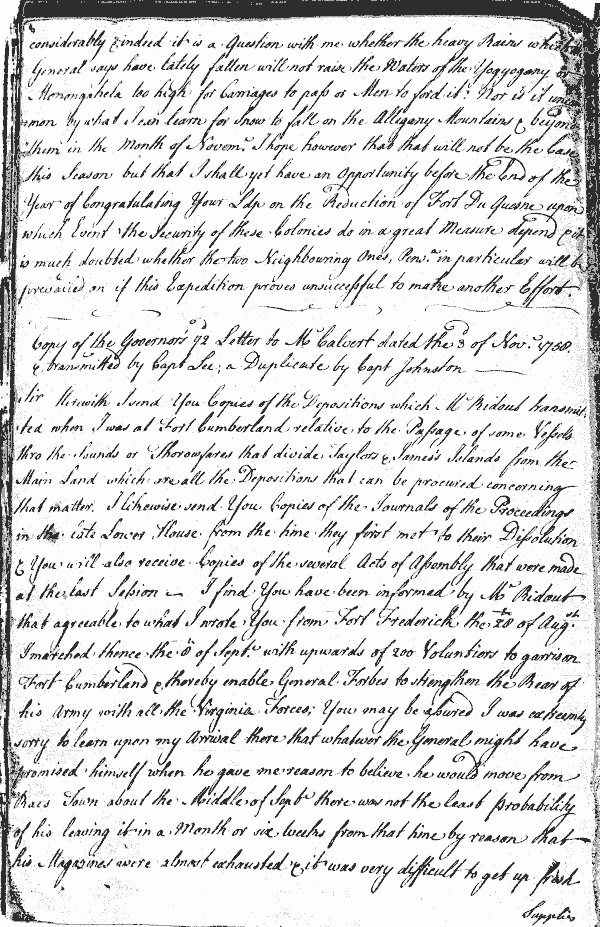 considerably & indeed it is a Question with me whether the heavy Rains which the
General says have lately fallen will not raise the Waters of the Yogyogany or
Monongahela too high for Carriages to pass or Men to ford it: Nor is it uncom
mon by what I can learn for Snow to fall on the Allegany Mountains & beyond
them in the Month of Novemr. I hope however that that will not be the Case
this Season but that I shall yet have an Opportunity before the End of the
Year of Congratulating Your Ldp on the Reduction of Fort Du Quesne upon
which Event the Security of these Colonies do in a great Measure depend & it
is much doubted whether the two Neighbouring Ones, Penna. in particular will be
prevailed on if this Expedition proves unsuccessful to make another Effort.
Copy of the Governors 92 Letter to Mr Calvert dated the 3d of Novr. 1758.
& transmitted by Capt Lee; a Duplicate by Capt Johnston
Sir Herewith I send You Copies of the Depositions which Mr Ridout transmit
ted when I was at Fort Cumberland relative to the Passage of some Vessels
thro the Sounds or Thorowfares that divide Taylors & James's Islands from the
Main Land which are all the Depositions that can be procured concerning
that matter. I likewise send You Copies of the Journals of the Proceedings
in the late Lower House from the time they first met to their Dissolution
& You will also receive Copies of the several Acts of Assembly that were made
at the last Session — I find You have been informed by Mr Ridout
that agreeable to what I wrote You from Fort Frederick the 28th of Augst.
I marched thence the 8th of Septr. with upwards of 200 Voluntiers to garrison
Fort Cumberland & thereby enable General Forbes to strengthen the Rear of
his Army with all the Virginia Forces; You may be assured I was extreamly
sorry to learn upon my Arrival there that whatever the General might have
promised himself when he gave me reason to believe he would move from
Raes Town about the Middle of Septr there was not the least Probability
of his leaving it in a Month or six weeks from that time by reason that
his Magazines were almost exhausted & it was very difficult to get up fresh
Supplies